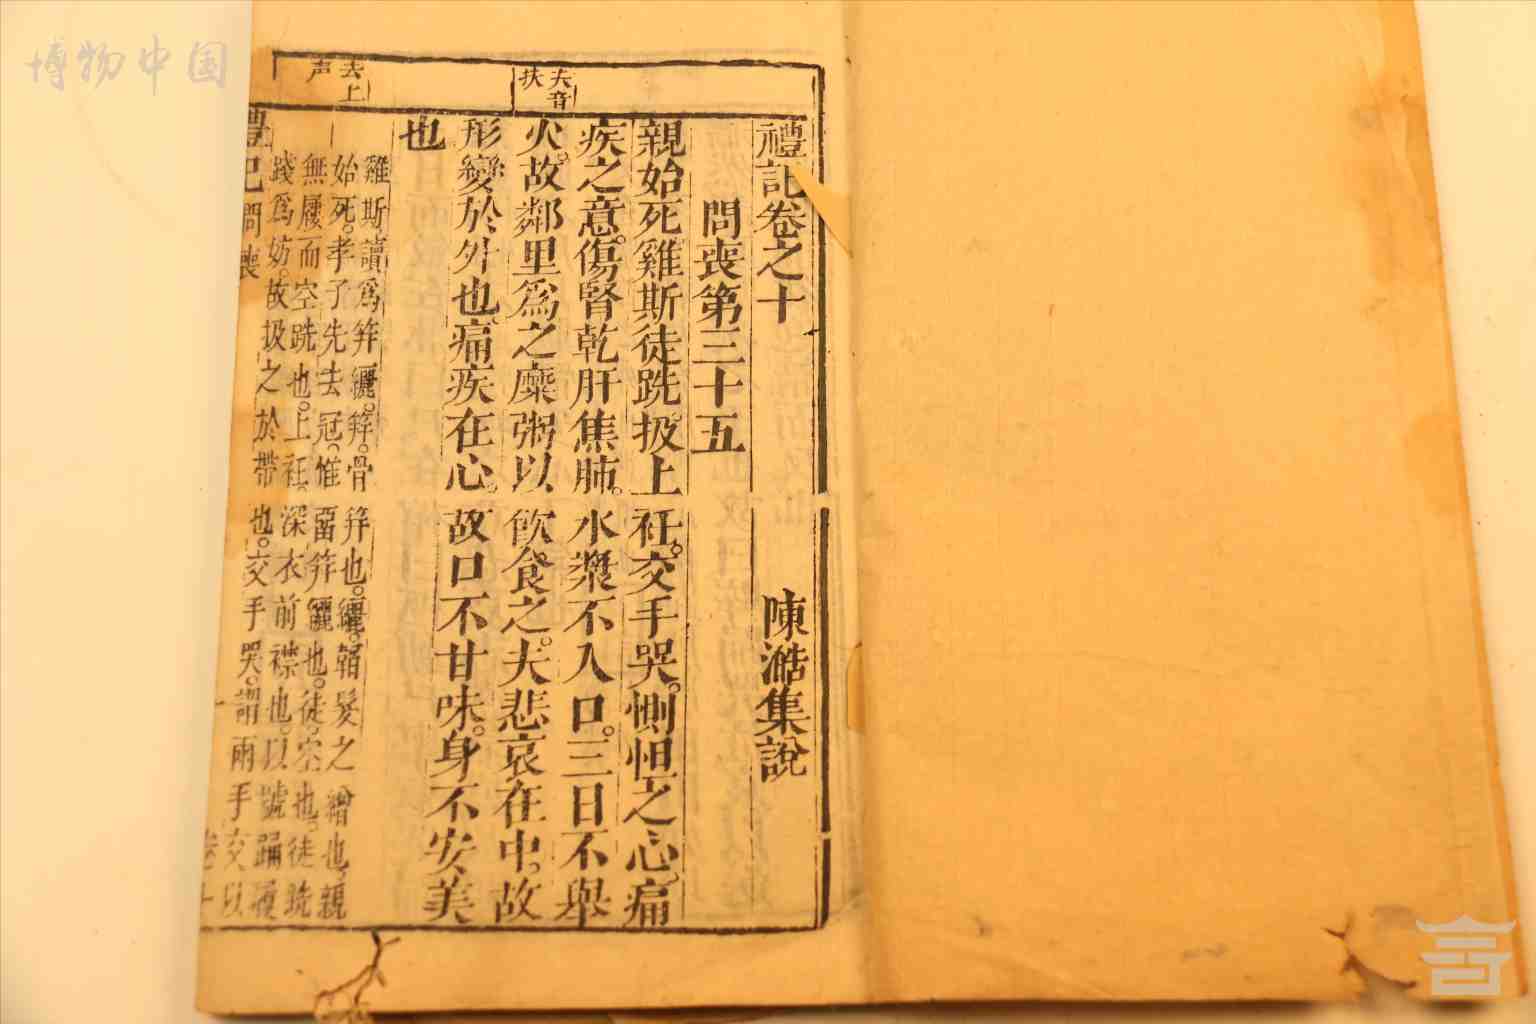 博物中国
禮記卷之十
陳澔集說
問喪第三十五
親始死雞斯徒跣扱上衽。交手哭。惻怛之心。痛
疾之意。傷腎乾肝焦肺。水漿不入口。三日不舉
火。故鄰里爲之糜粥以飲食之。夫悲哀在中。故
形變於外也。痛疾在心。故口不甘味。身不安美
也
夫音
扶
去上
声
雞斯讀爲笄纚。笄。骨笄也。纚。韜髮之繒也。親
始死。孝子先去冠。惟留笄纚也。徒。空也。徒跣
無屨而空跣也。上衽。深衣前襟也。以號踊履
踐爲妨。故扱之於帶也。交手哭。謂兩手交以
禮記 問喪 卷十